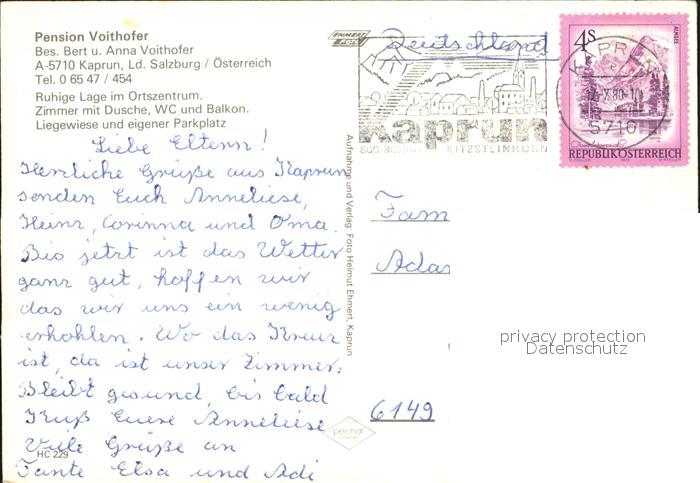 Pension Voithofer
Bes. Bert u. Anna Voithofer
A-5710 Kaprun, Ld. Salzburg / Österreich
Tel. 0 65 47 / 454
Ruhige Lage im Ortszentrum.
Zimmer mit Dusche, WC und Balkon.
Liegewiese und eigener Parkplatz
Liebe Eltern!
Herzliche Grüße aus Kaprun
senden Euch Anneliese,
Heinz, Corinna und Oma.
Bis jetzt ist das Wetter
ganz gut, hoffen wir
das wir uns ein wenig
erhohlen. Wo das Kreuz
ist, da ist unser Zimmer.
Bleibt gesund, bis bald
Gruß Euere Anneliese
Viele Grüße an
Tante Elsa und Adi
HC 229
Aufnahme und Verlag: Foto Helmut Ehmert, Kaprun
Deutschland
kaprun
KITZSTEINHORN
4S
ALMSEE
REPUBLIK ÖSTERREICH
KAPRUN
5710
Fam
Adas
6149
privacy protection
Datenschutz